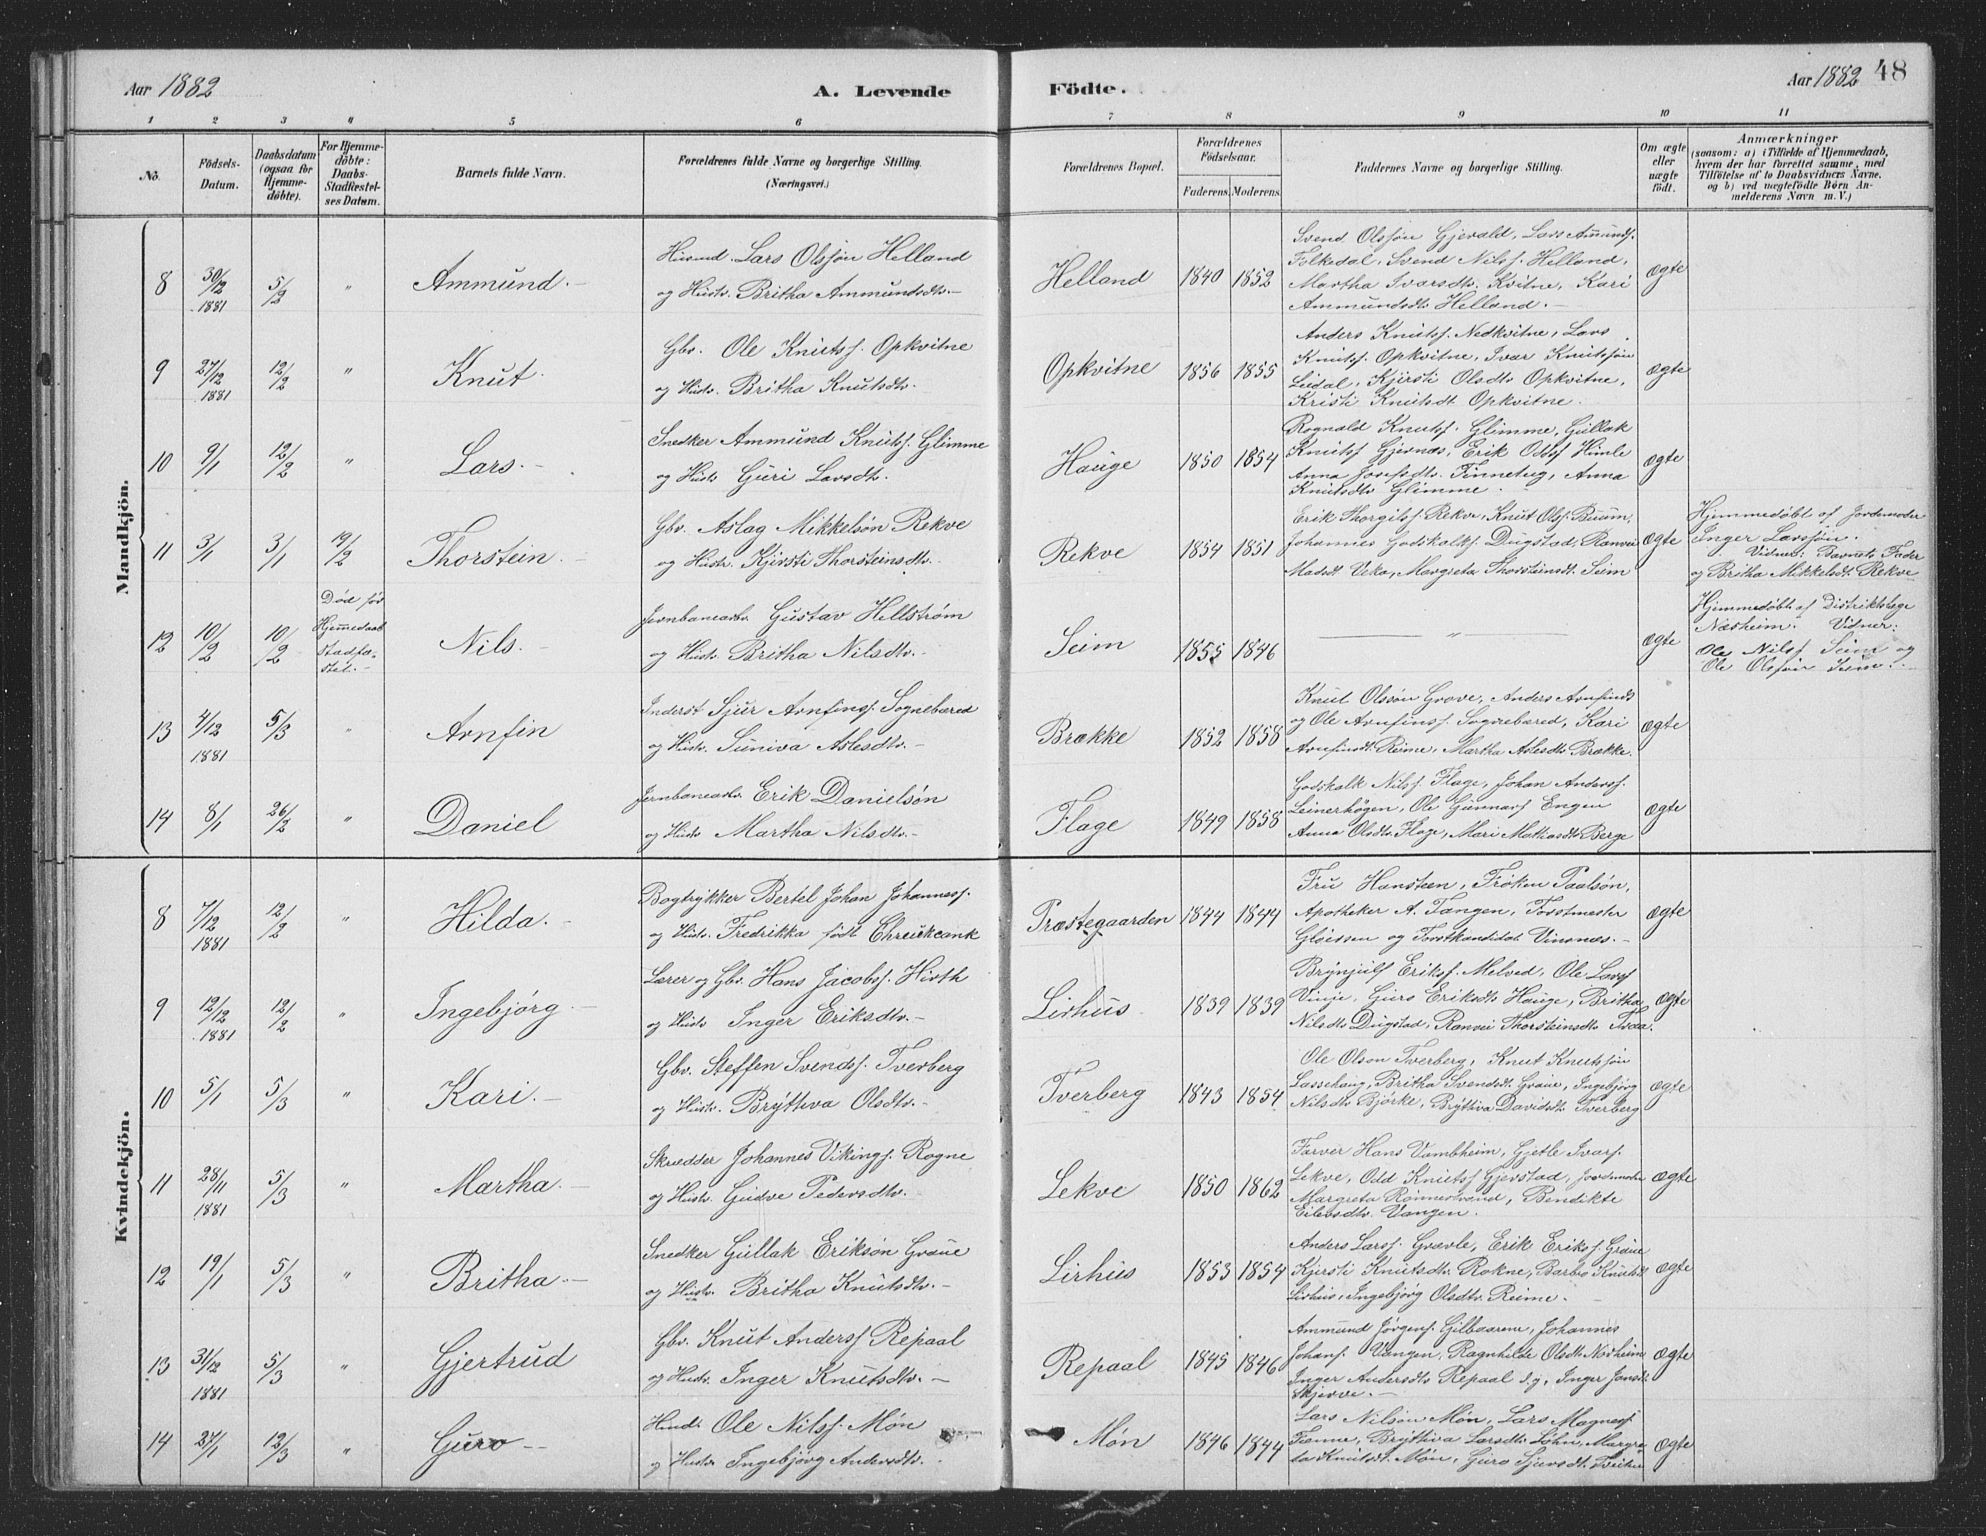 Aar 1882
A. Levende
Födte.
Aar 1882
48
1 2 3 4 5 6 7 8 9 10 11
No.
Födsels-
Datum.
Daabsdatum
(ogsaa for
Hjemme-
döbte).
For Hjemme-
döbte:
Daabs-
Stadfæstel-
ses Datum.
Barnets fulde Navn.
Forældrenes fulde Navne og borgerlige Stilling.
(Næringsvei.)
Forældrenes Bopæl.
Forældrenes
Födselsaar.
Faderens. Moderens.
Faddernes Navne og borgerlige Stilling.
Om ægte
eller
uægte
födt.
Anmærkninger
(saasom: a) i Tilfælde af Hjemmedaab,
hvem der har forrettet samme, med
Tilföielse af to Daabsvidners Navne,
og b) ved uægtefödte Börn An-
melderens Navn m. V.)
Mandkjön.
8 30/12 1881 5/2 " Ammund.
Husmd. Lars Olssön Helland
og Hustr. Britha Ammundsdtr.
Helland 1840 1852
Svend Olssön Gjerald, Lars Amunds.
Folkedal, Svend Nilss. Helland,
Martha Ivarsdtr. Kvitne, Kari
Ammundsdtr. Helland.
ægte
9 27/12 1881 12/2 " Knut.
Gbr. Ole Knutss. Opkvitne
og Hustr. Britha Knutsdtr.
Opkvitne 1856 1855
Anders Knutss. Nedkvitne, Lars
Knutss. Opkvitne, Ivar Knutssön
Leidal, Kjersti Olsdtr. Opkvitne,
Kristi Knutsdt Opkvitne.
ægte
10 9/1 12/2 " Lars.
Snedker Ammund Knutss. Glimme
og Hustr. Guri Larsdtr.
Hauge 1850 1854
Rognald Knutss. Glimme, Gullak
Knutss Gjernæs, Erik Oddss Himle
Anna Josefsdtr. Finneteg, Anna
Knutsdtr Glimme.
ægte
11 3/1 3/1 19/2 Thorstein.
Gbr. Aslag Mikkelsön Rekve
og Hustr. Kjersti Thorsteinsdtr.
Rekve 1854 1851
Erik Thorgilss. Rekve, Knut Olss. Buum,
Johannes Godskalks. Dugstad, Ranvei
Madsdt Veka, Margreta Thorsteinsdt. Seim
ægte
Hjemmedöbt af Jordemoder
Inger Larssön.
Vidner: Barnets Fader
og Britha Mikkelsdt. Rekve
12 10/2 10/2
Död för
Hjemmedaab
Stadfæ-
stel.
Nils.
Jernbanearb. Gustav Hellström
og Hustr. Britha Nilsdtr.
Seim 1855 1846 "
ægte
Hjemmedöbt af Distriktslæge
Næsheim. Vidner:
Ole Nilss Seim og
Ole Olssön Seim.
13 4/12 1881 5/3 " Arnfin
Inderst Sjur Arnfins. Sognebæred
og Hustr. Suniva Aslesdtr.
Brække 1852 1858
Knut Olssön Grove, Anders Arnfinds
og Ole Arnfinss. Sognebæred, Kari
Arnfinsdt. Reime, Martha Aslesdtr. Brække.
ægte
14 8/1 26/2 " Daniel
Jernbanearb. Erik Danielsön
og Hustr Martha Nilsdtr.
Flage 1849 1858
Godskalk Nilss. Flage, Johan Anderss.
Leinerhögen, Ole Gunnars Engen
Anna Olsdtr. Flage, Mari Mathiasdtr. Berge
ægte
Kvindekjön.
8 7/12 1881 12/2 " Hilda.
Bogtrykker Bertel Johan Johanness.
og Hustr. Fredrikka födt
Præstegaarden 1844 1844
Fru Hansteen, Fröken Paalsön,
Apotheker A. Tangen, Forstmester
Glöissen og Forstkandidat Vinsnæs.
ægte
9 12/12 1881 12/2 " Ingebjörg.
Lærer og Gbr. Hans Jacobss. Hirth
og Hustr Inger Eriksdtr.
Lirhus 1839 1839
Brynjulf Erikss. Melved, Ole Larss
Vinje, Guro Eriksdtr. Hauge, Britha
Nilsdtr. Dugstad, Ranvei Thorsteinsdtr.
ægte
10 5/1 5/3 " Kari.
Gbr. Steffen Svendss. Tverberg
og Hustr. Brythva Olsdtr.
Tverberg 1843 1854
Ole Olson Tverberg, Knut Knutssön
Lassehaug, Britha Svendsdt. Graue, Ingebjörg
Nilsdtr. Björke, Brythva Davidsdt. Tverberg
ægte
11 28/11 1881 5/3 " Martha.
Skrædder Johannes Vikings. Rogne
og Hustr. Gudve Pedersdtr.
Lekve 1850 1862
Farver Hans Vambheim, Gjetle Ivars.
Lekve, Odd Knutss Gjerstad, Jordemoder
Margreta Rönnestrand, Bendikte
Eilevsdtr. Vangen.
ægte
12 19/1 5/3 " Britha.
Snedker Gullak Eriksön Graue
og Hustr. Britha Knutsdtr.
Lirhus 1853 1854
Anders Larss. Grævle, Erik Erikss. Graue
Kjersti Knutsdtr. Rokne, Barbro Knutsd.
Lirhus, Ingebjörg Olsdtr. Reime.
ægte
13 31/12 1881 5/3 " Gjertrud
Gbr. Knut Anderss Repaal
og Hustr. Inger Knutsdtr.
Repaal 1845 1846
Ammund Jörgens. Gilbaarene, Johannes
Johans. Vangen, Ragnhilde Olsdt. Norheim
Inger Andersdtr Repaal d.y., Inger Jonsdt.
Skjerve.
ægte
14 27/1 12/3 " Guro
Husd. Ole Nilss. Møn
og Hustr. Ingebjörg Andersdtr.
Møn 1846 1844
Lars Nilson Møn, Lars Magness
Tenne, Brythva Larsdtr. Löhn, Margre-
ta Knutsdt. Møn, Guro Sjursdt.
ægte